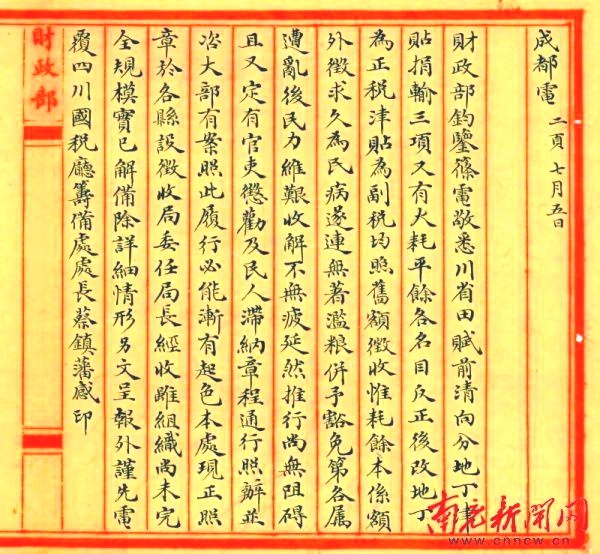 成都電 二頁 七月五日
財政部鈞鑒篠電敬悉川省田賦前清向分地丁津
貼捐輸三項又有火耗平餘各名目反正後改地丁
為正稅津貼為副稅均照舊額徵收惟耗餘本係額
外徵求久為民病遂連無著濫粮併予豁免第各属
遭亂後民力維艱收解不無疲延然推行尚無阻碍
且又定有官吏懲勸及民人滯納章程通行照辦並
咨大部有案照此履行必能漸有起色本處現正照
章於各縣設徵收局委任局長經收雖組織尚未完
全規模實已解備除詳細情形另文呈報外謹先電
覆四川國稅廳籌備處處長蔡鎮藩感印
財政部
南充新聞网
www.cnncw.cn